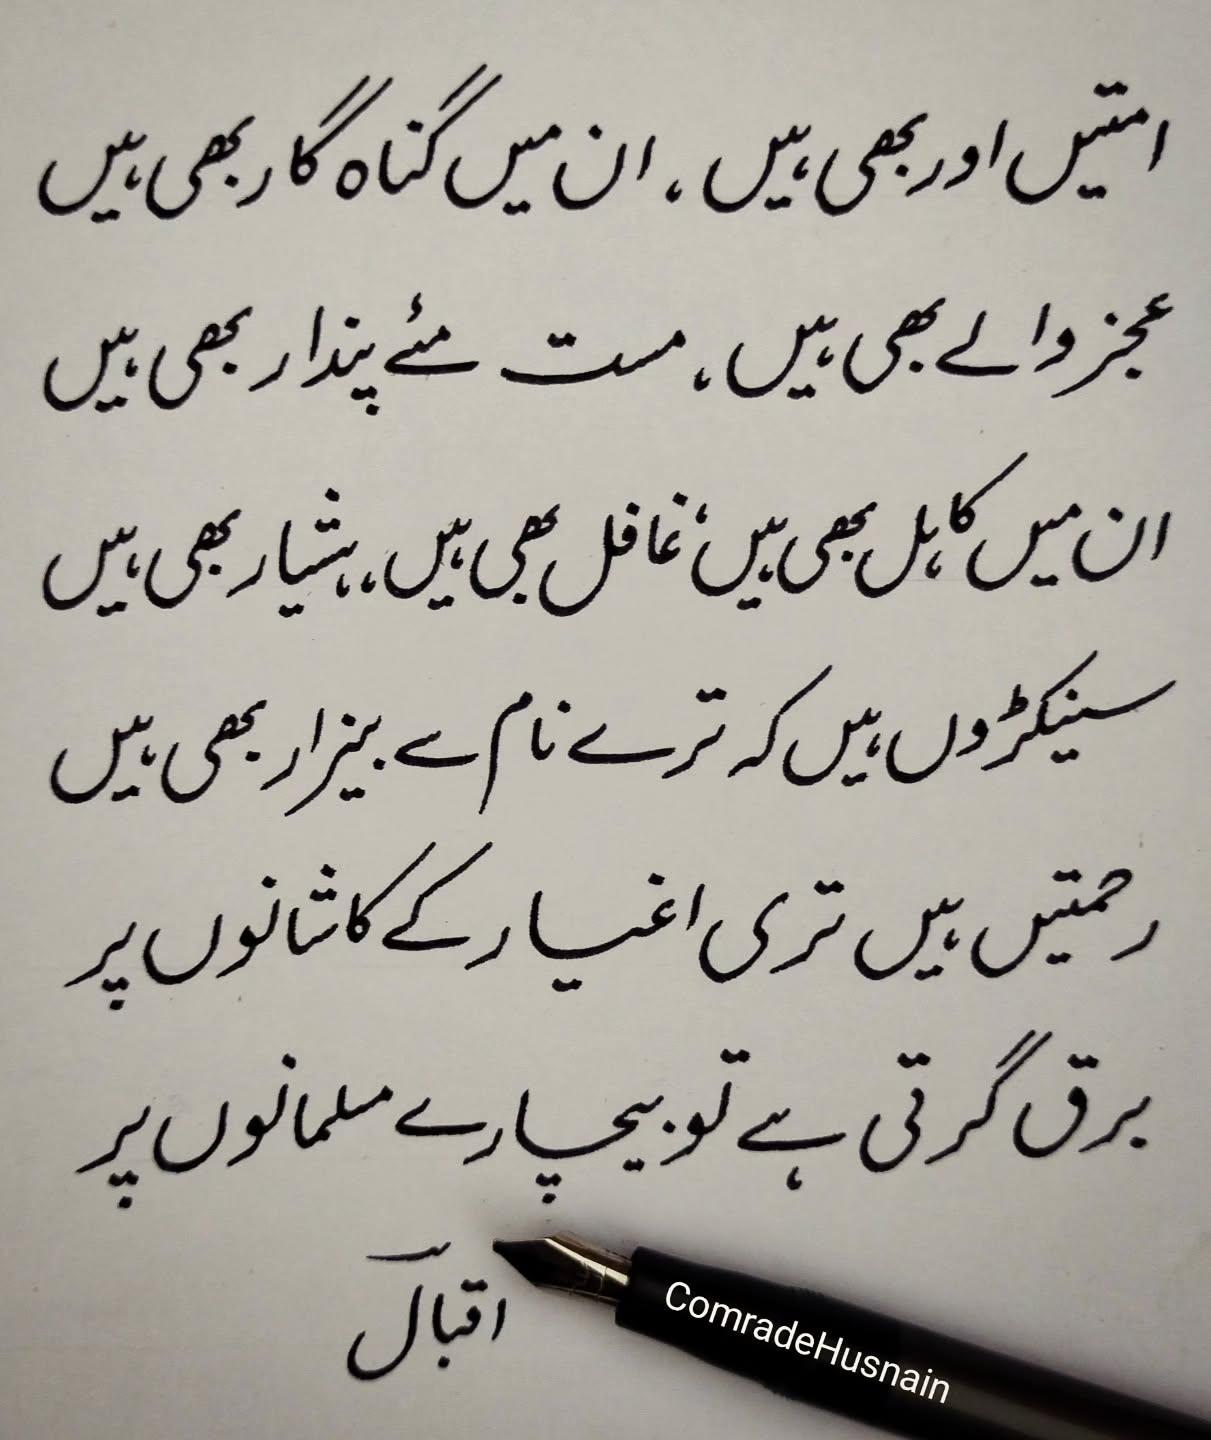 امتیں اور بھی ہیں ، ان میں گناہ گار بھی ہیں
عجز والے بھی ہیں ، مست مئے پندار بھی ہیں
ان میں کاہل بھی ہیں، غافل بھی ہیں، ہشیار بھی ہیں
سینکڑوں ہیں کہ ترے نام سے بیزار بھی ہیں
رحمتیں ہیں تری اغیار کے کاشانوں پر
برق گرتی ہے تو بیچارے مسلمانوں پر
اقبالؔ
ComradeHusnain